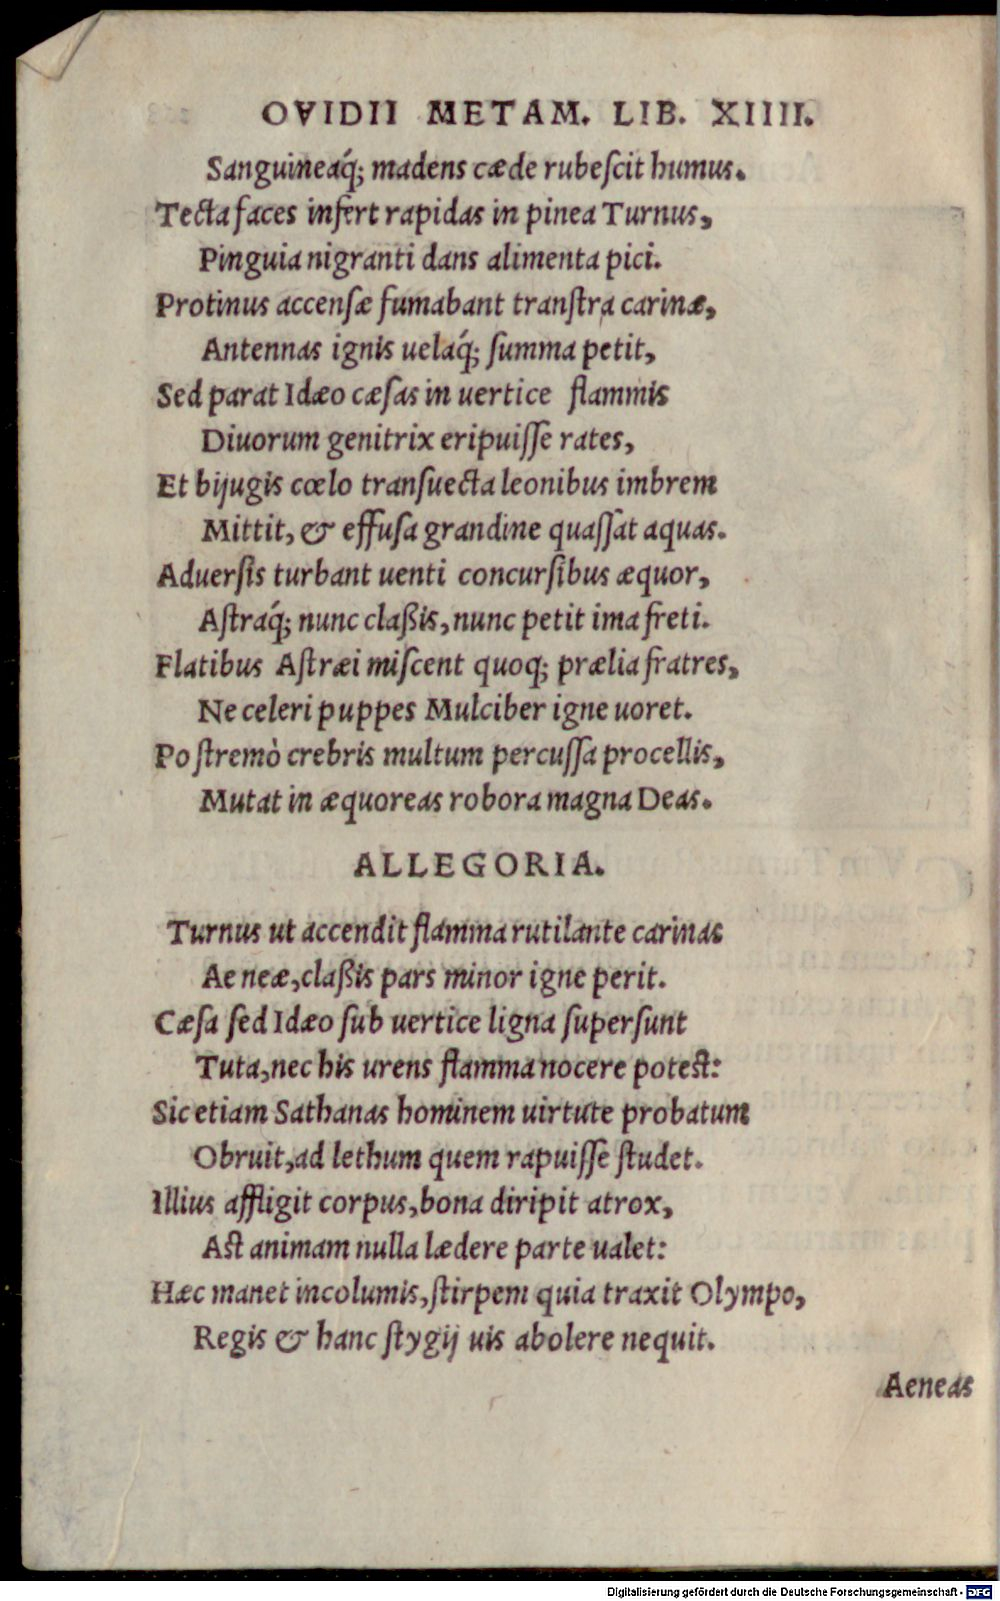 OVIDII METAM. LIB. XIIII.
Sanguineaq́; madens cæde rubeſcit humus.
Tecta faces infert rapidas in pinea Turnus,
Pinguia nigranti dans alimenta pici.
Protinus accenſæ fumabant tranſtra carinæ,
Antennas ignis uelaq́; ſumma petit,
Sed parat Idæo cæſas in uertice flammis
Diuorum genitrix eripuiſſe rates,
Et bijugis cœlo tranſuecta leonibus imbrem
Mittit, & effuſa grandine quaſſat aquas.
Aduerſis turbant uenti concurſibus æquor,
Aſtraq́; nunc claßis, nunc petit ima freti.
Flatibus Aſtræi miſcent quoq; prælia fratres,
Ne celeri puppes Mulciber igne uoret.
Poſtremò crebris multum percuſſa procellis,
Mutat in æquoreas robora magna Deas.
ALLEGORIA.
Turnus ut accendit flamma rutilante carinas
Aeneæ, claßis pars minor igne perit.
Cæſa ſed Idæo ſub uertice ligna ſuperſunt
Tuta, nec his urens flamma nocere poteſt:
Sic etiam Sathanas hominem uirtute probatum
Obruit, ad lethum quem rapuiſſe ſtudet.
Illius affligit corpus, bona diripit atrox,
Aſt animam nulla lædere parte ualet:
Hæc manet incolumis, ſtirpem quia traxit Olympo,
Regis & hanc ſtygij uis abolere nequit.
Aeneas
Digitalisierung gefördert durch die Deutsche Forschungsgemeinschaft - DFG